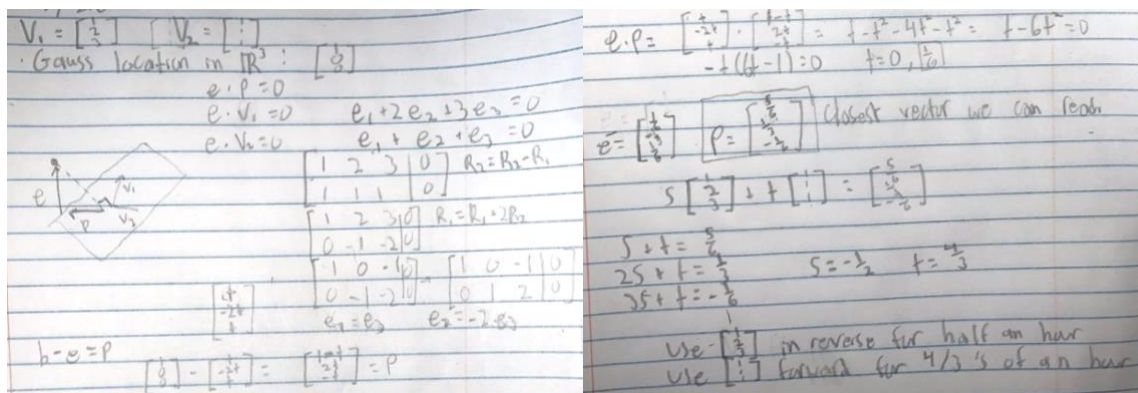 V₁ = [1 2 3] V₂ = [1 1 1]
· Gauss location in ℝ³ : [1 0 0]
e · p = 0
e · V₁ = 0 e₁ + 2e₂ + 3e₃ = 0
e · V₂ = 0 e₁ + e₂ + e₃ = 0
[1 2 3 | 0] R₂ = R₂ - R₁
[1 1 1 | 0]
e V₁
p V₂
[1 2 3 | 0] R₁ = R₁ + 2R₂
[0 -1 -2 | 0]
[1 0 -1 | 0] → [1 0 -1 | 0]
[0 -1 -2 | 0] [0 1 2 | 0]
[t -2t t] e₁ = e₃ e₂ = -2 e₃
b - e = p
[1 0 0] - [t -2t t] = [1-t 2t -t] = p
e · p = [t -2t t] · [1-t 2t -t] = t - t² - 4t² - t² = t - 6t² = 0
-t(6t - 1) = 0 t = 0, 1/6
e = [1/6 -1/3 1/6] p = [5/6 1/3 -1/6] Closest vector we can
s [1 2 3] + t [1 1 1] = [5/6 1/3 -1/6]
s + t = 5/6
2s + t = 1/3 s = -1/2 t = 4/3
3s + t = -1/6
use - [1 2 3] in reverse for half an hour
use [1 1 1] forward for 4/3's of an hour